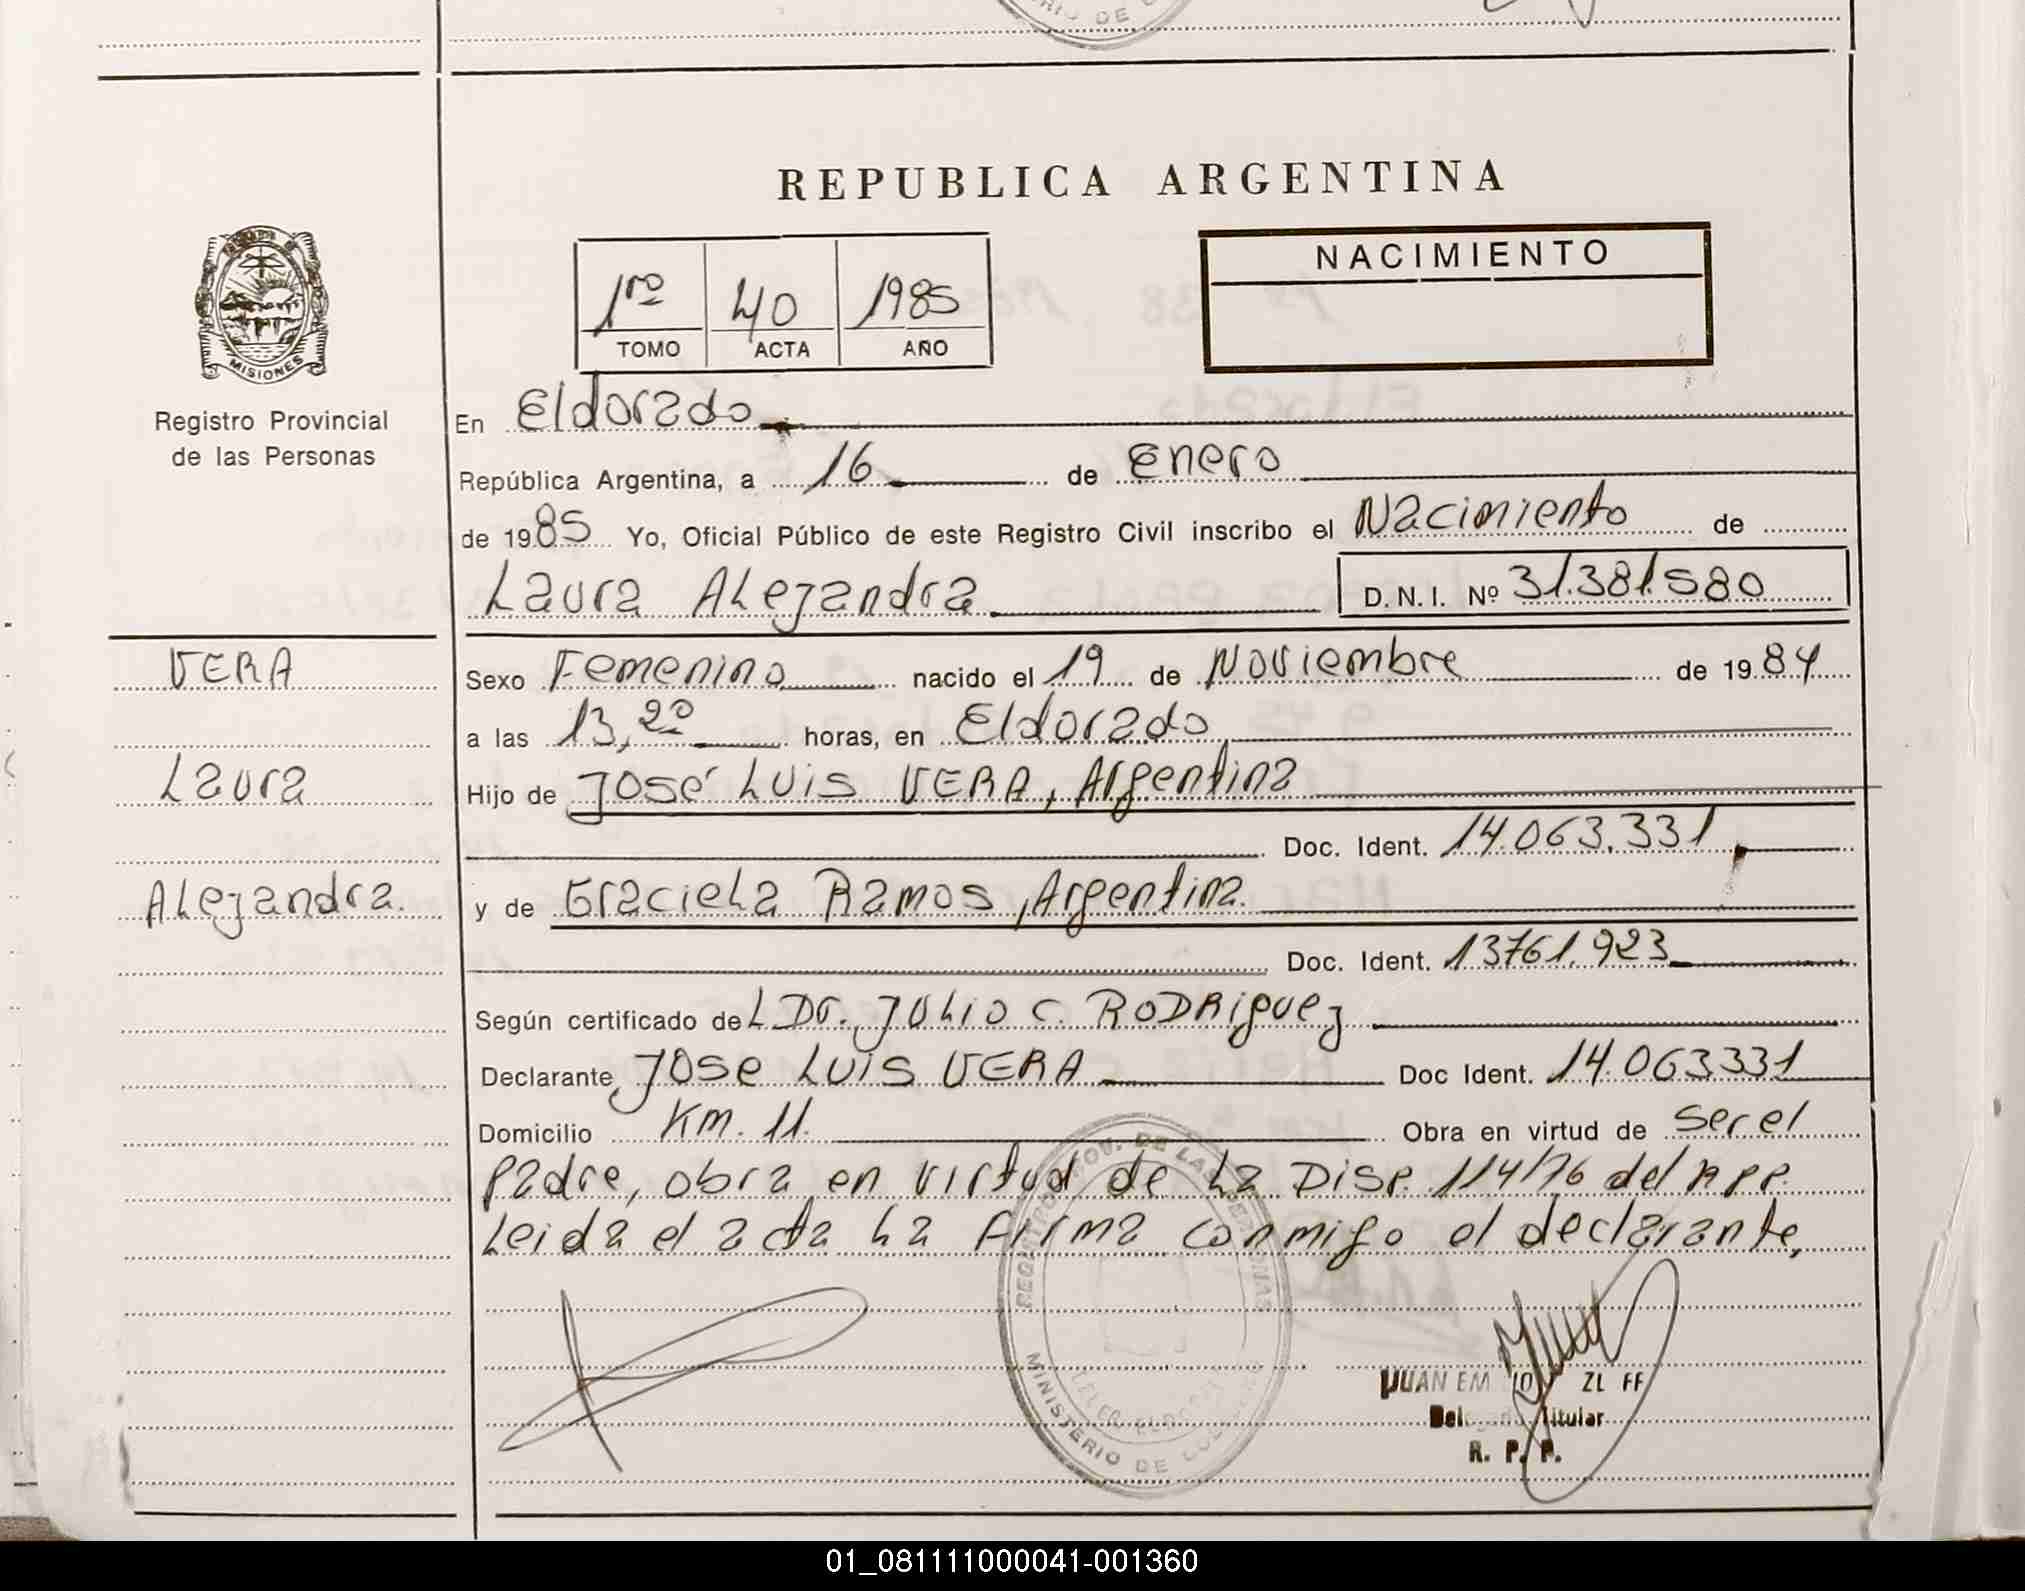 REPUBLICA ARGENTINA
NACIMIENTO
1ro 40 1985
TOMO ACTA AÑO
MISIONES
Registro Provincial
de las Personas
En Eldorado
República Argentina, a 16 de Enero
de 1985 Yo, Oficial Público de este Registro Civil inscribo el Nacimiento de
Laura Alejandra D.N.I. Nº 31.381.580
VERA
Laura
Alejandra.
Sexo Femenino nacido el 19 de Noviembre de 1984
a las 13,20 horas, en Eldorado
Hijo de José Luis VERA, Argentina
Doc. Ident. 14.063.331
y de Graciela Ramos, Argentina.
Doc. Ident. 13761.923
Según certificado de L Dr. Julio C. RODRiguez
Declarante Jose Luis VERA Doc Ident. 14.063331
Domicilio Km. 11. Obra en virtud de ser el
Padre, obra en virtud de La Disp. 114/76 del RPP.
Leida el acta La firma conmigo el declarante,
REGISTRO PROV. DE LAS PERSONAS
MINISTERIO DE GOBIERNO
JUAN EM
Titular
R. P. P.
01_081111000041-001360